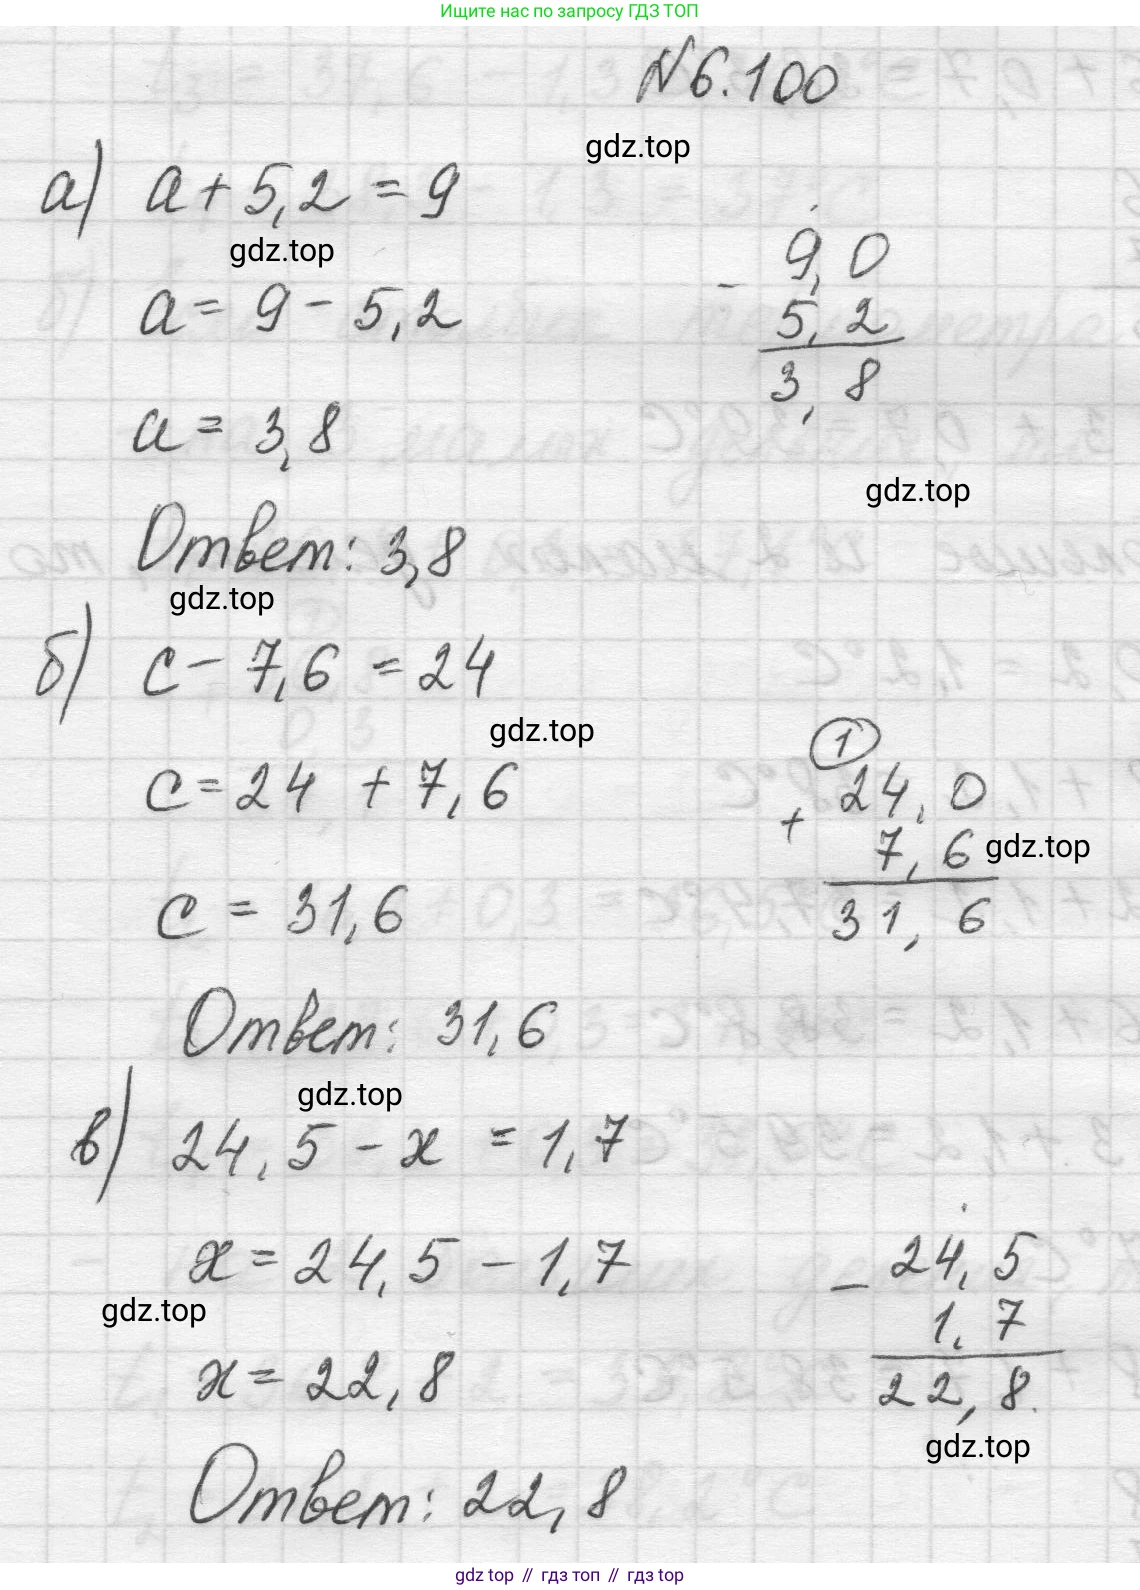 Ищите нас по запросу ГДЗ ТОП
№6.100
gdz.top
а) a + 5,2 = 9
gdz.top
a = 9 - 5,2
- 9,0
5,2
3,8
a = 3,8
gdz.top
Ответ: 3,8
gdz.top
б) c - 7,6 = 24
gdz.top
c = 24 + 7,6
1
+ 24,0
7,6
gdz.top
31,6
c = 31,6
Ответ: 31,6
gdz.top
в) 24,5 - x = 1,7
x = 24,5 - 1,7
- 24,5
1,7
22,8
gdz.top
x = 22,8
gdz.top
Ответ: 22,8
gdz top // гдз топ // gdz top